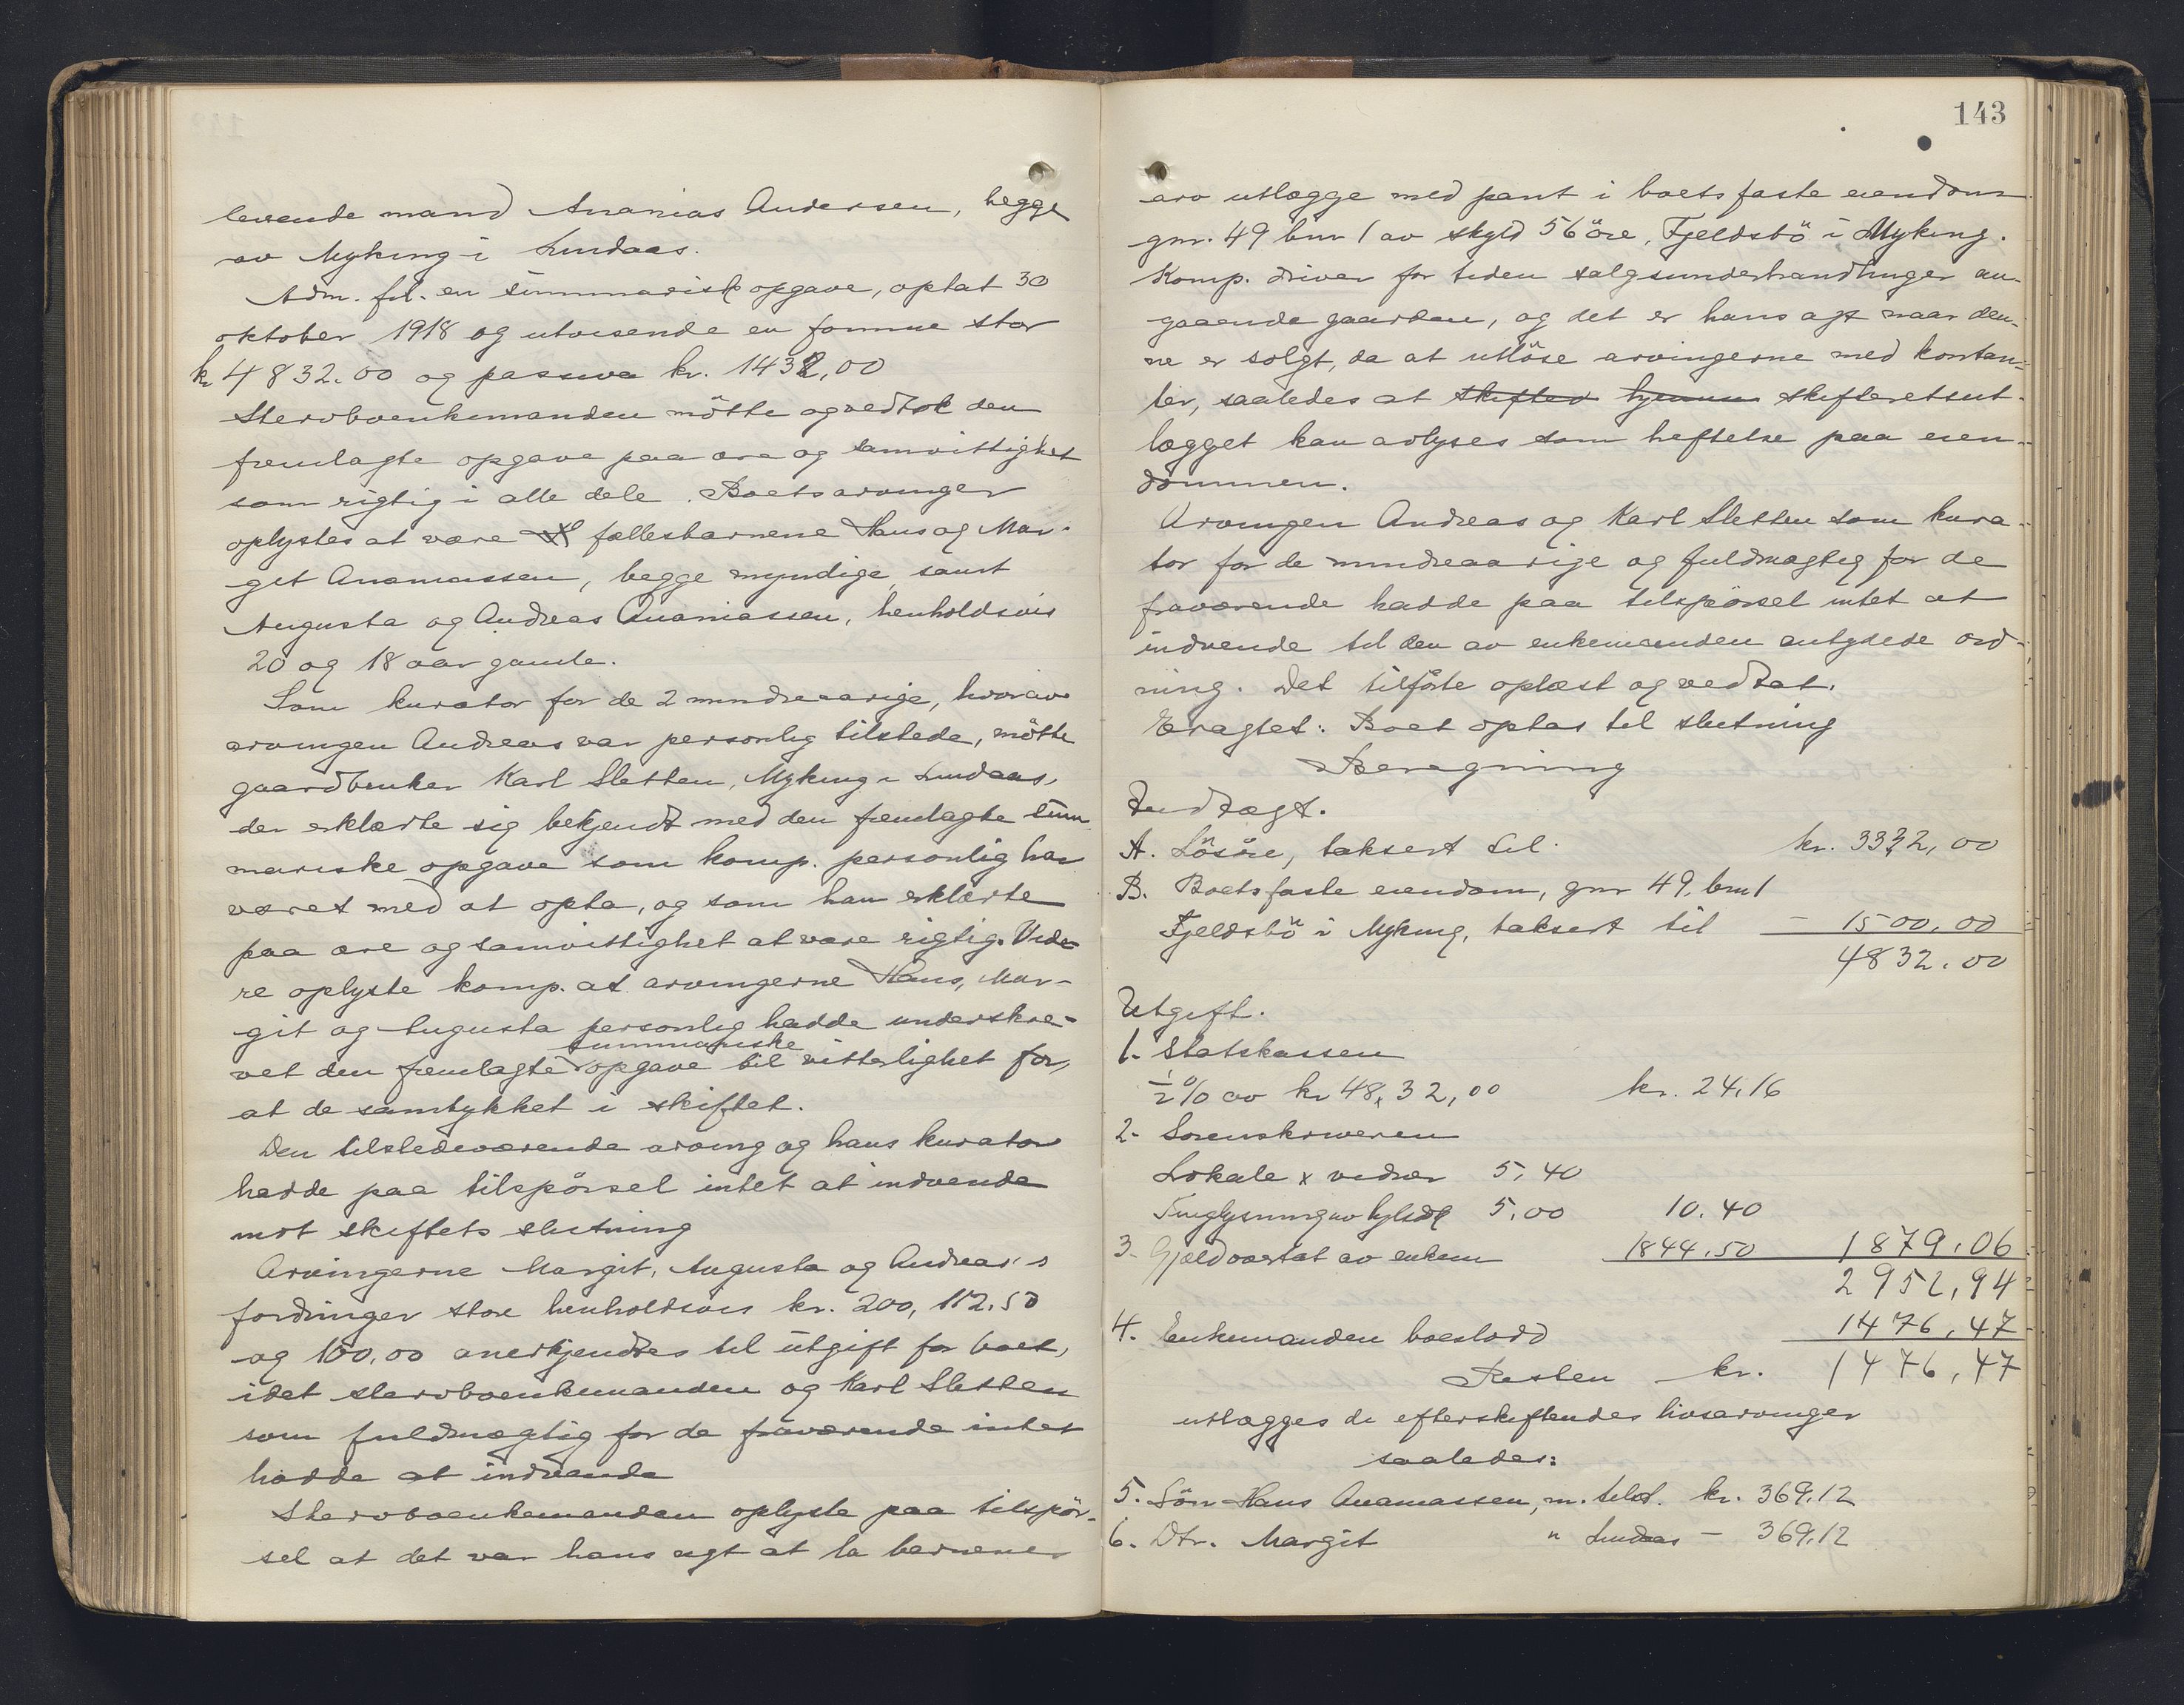 levende mand Ananias Andersen, begge
av Myking i Lindaas.
Adm. frl. en summarisk opgave, optat 30
oktober 1918 og utvisende en formue stor
kr 4832.00 og passiva kr. 1432,00
Stervboenkemanden mötte og vedtok den
fremlagte opgave paa ære og samvittighet
som rigtig i alle dele. Boets arvinger
oplystes at være fællesbarnene Hans og Mar-
git Ananiassen, begge myndige samt
Augusta og Andreas Ananiassen, henholdsvis
20 og 18 aar gamle.
Som kurator for de 2 mindreaarige, hvorav
arvingen Andreas var personlig tilstede, mötte
gaardbruker Karl Sletten, Myking i Lindaas,
der erklærte sig bekjendt med den fremlagte sum
mariske opgave som komp. personlig har
været med at opta, og som han erklærte
paa ære og samvittighet at være rigtig. Vide-
re oplyste komp. at arvingerne Hans, Mar-
git og Augusta personlig hadde underskre-
vet den fremlagte summariske opgave til vitterlighet for,
at de samtykket i skiftet.
Den tilstedeværende arving og hans kurator
hadde paa tilspörsel intet at indvende
mot skiftets slutning
Arvingerne Margit, Augusta og Andreas's
fordringer store henholdsvis kr. 200, 112.50
og 100,00 anerkjendtes til utgift for boet,
idet stervboenkemanden og Karl Sletten
som fuldmægtig for de fraværende intet
hadde at indvende
Stervboenkemanden oplyste paa tilspör-
sel at det var hans agt at la barnenes
143
arv utlægge med pant i boets faste eiendom
gnr. 49 bnr 1 av skyld 56 öre, Fjeldsbö i Myking.
Komp. driver for tiden salgsunderhandlinger an-
gaaende gaarden, og det er hans agt naar den-
ne er solgt, da at utlöse arvingerne med kontan-
ter, saaledes at skifter hjemm skifteretsut-
lægget kan avlyses som heftelse paa eien-
dommen.
Arvingen Andreas og Karl Sletten som kura-
tor for de mindreaarige og fuldmægtig for de
fraværende hadde paa tilspörsel intet at
indvende til den av enkemanden antydede ord-
ning. Det tilförte oplæst og vedtat.
Eragtet: Boet optas til slutning
Beregning
Indtægt.
A. Lösöre, taksert til kr. 3332,00
B. Boets faste eiendom, gnr 49, bnr 1
Fjeldsbö i Myking, taksert til - 1500,00
4832.00
Utgift.
1. Statskassen
½% av kr 4832,00 kr. 24.16
2. Sorenskriveren
Lokale x vidner 5,40
Tinglysning av 5,00 10.40
3. Gjæld overtat av enkem 1844.50 1879.06
2952,94
4. Enkemanden boeslodd 1476,47
Resten kr. 1476,47
utlægges de efterskiftendes livsarvinger
saaledes:
5. Sön Hans Ananiassen, m. tilst. kr. 369.12
6. Dtr. Margit " Lindaas - 369.12